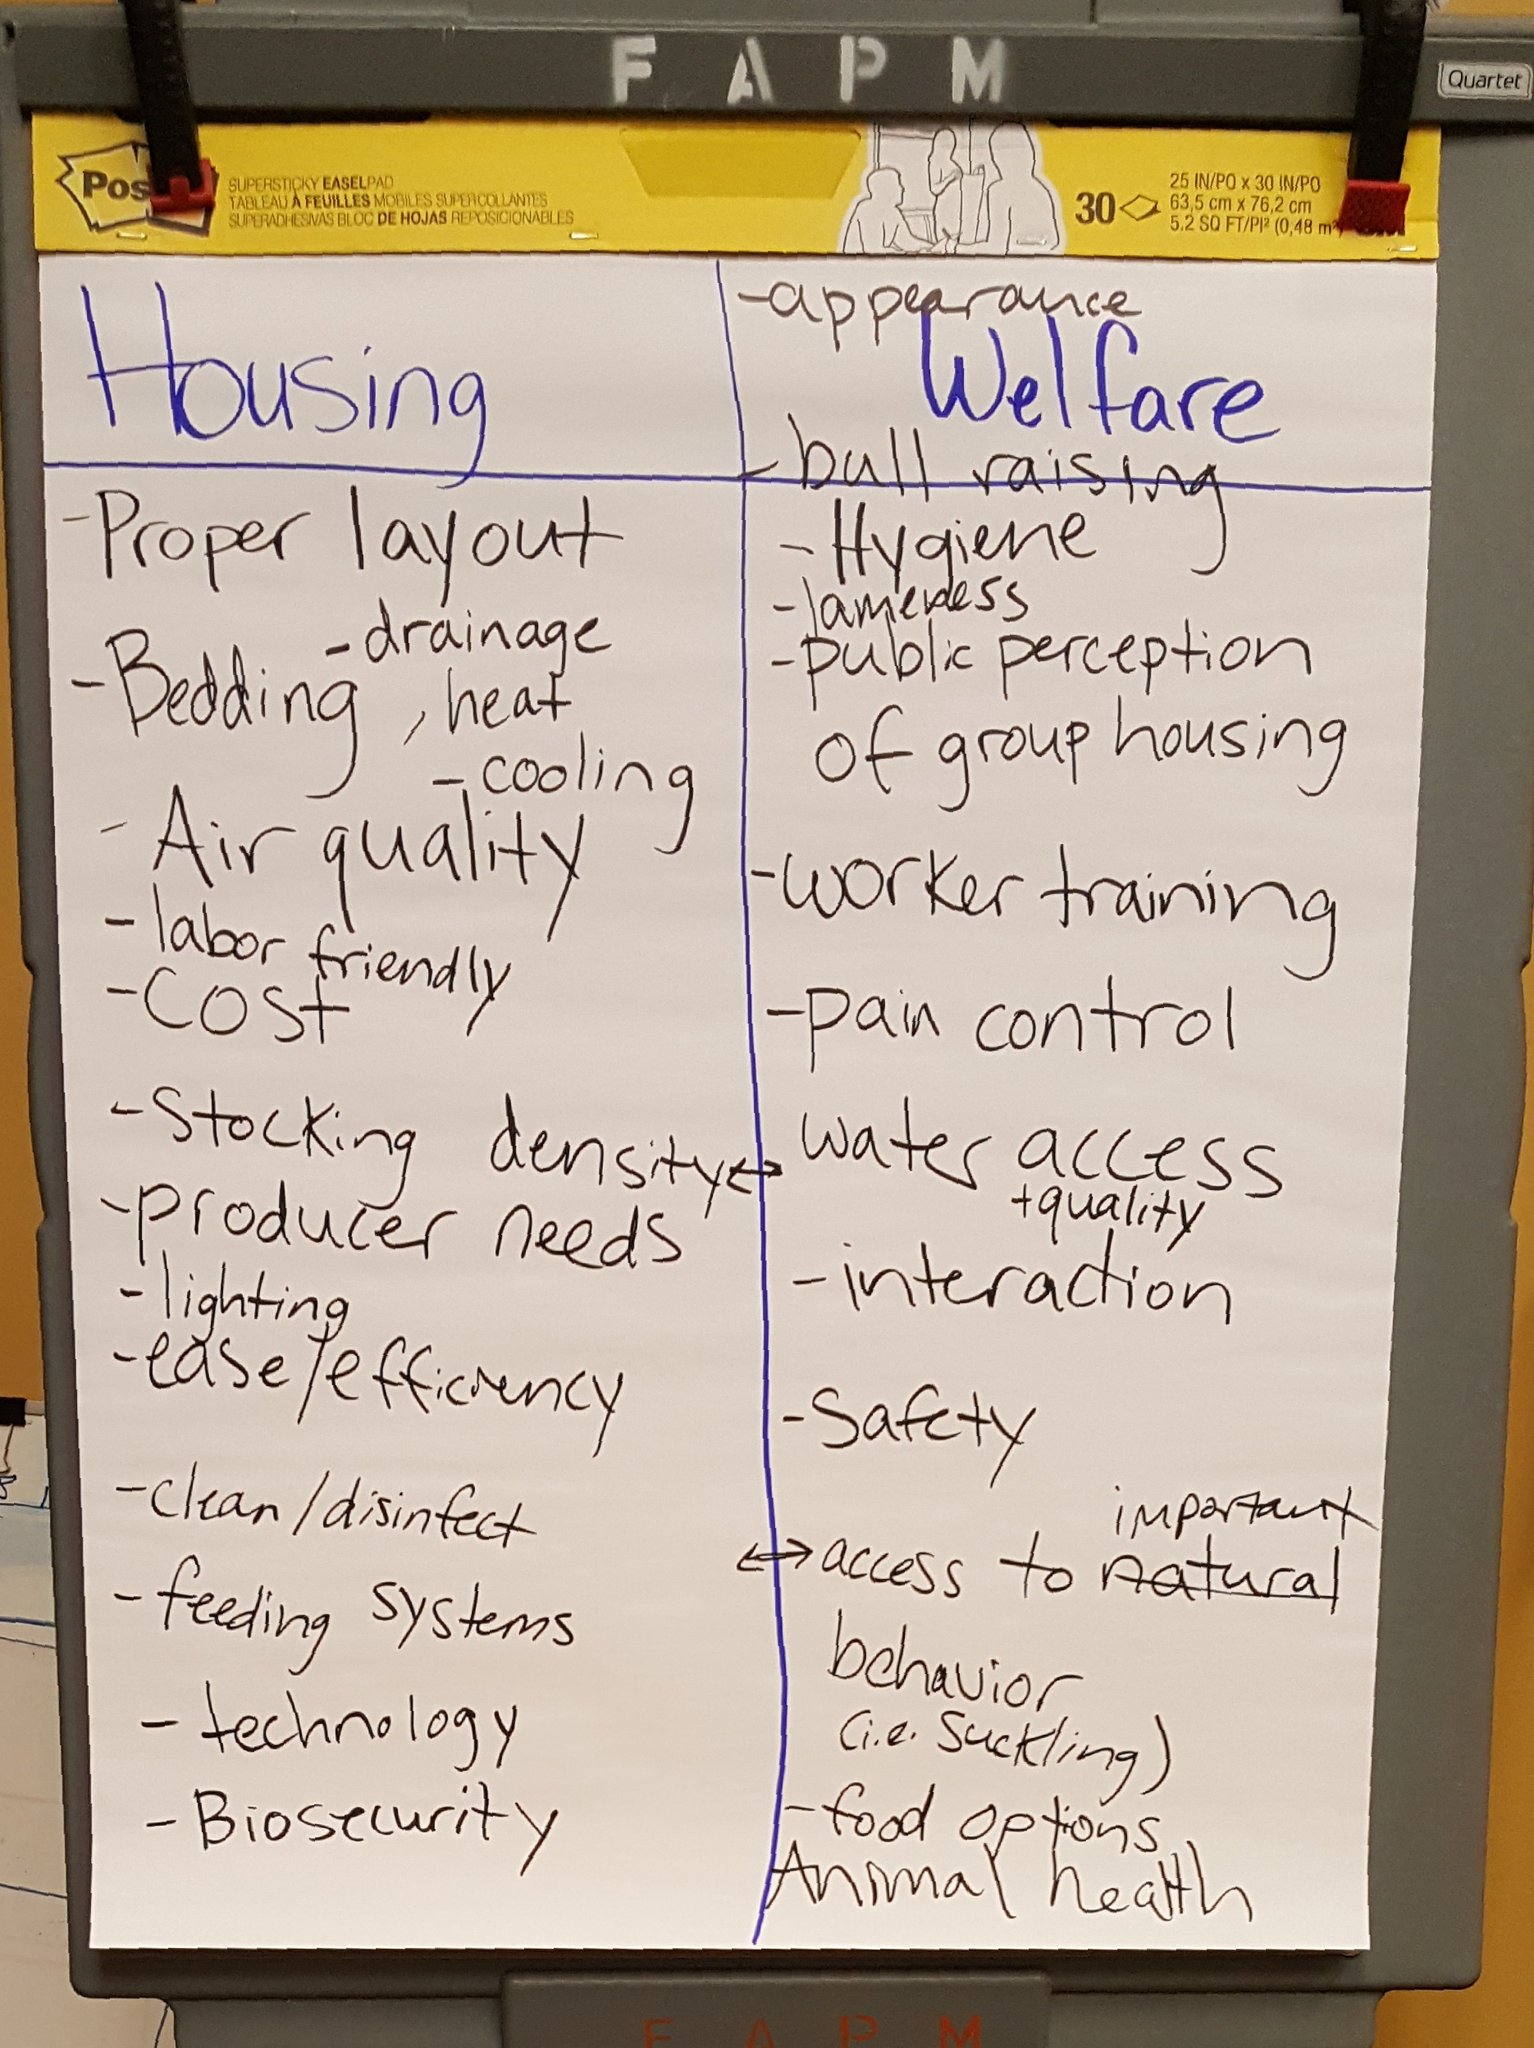 F A P M
Quartet
Pos
SUPERSTICKY EASELPAD
TABLEAU À FEUILLES MOBILES SUPERCOLLANTES
SUPERADHESIVAS BLOC DE HOJAS REPOSICIONABLES
30
25 IN/PO x 30 IN/PO
63,5 cm x 76,2 cm
5.2 SQ FT/PI² (0,48 m²)
Housing
- Proper layout
- drainage
- Bedding, heat
- cooling
- Air quality
- labor friendly
- Cost
- Stocking density ↔
- producer needs
- lighting
- ease/efficiency
- clean/disinfect
- feeding systems
- technology
- Biosecurity
- appearance
Welfare
- bull raising
- Hygiene
- lameness
- public perception
of group housing
- worker training
- pain control
water access
+quality
- interaction
- Safety
important
↔ access to natural
behavior
(i.e. suckling)
- food options
Animal health
F A P M